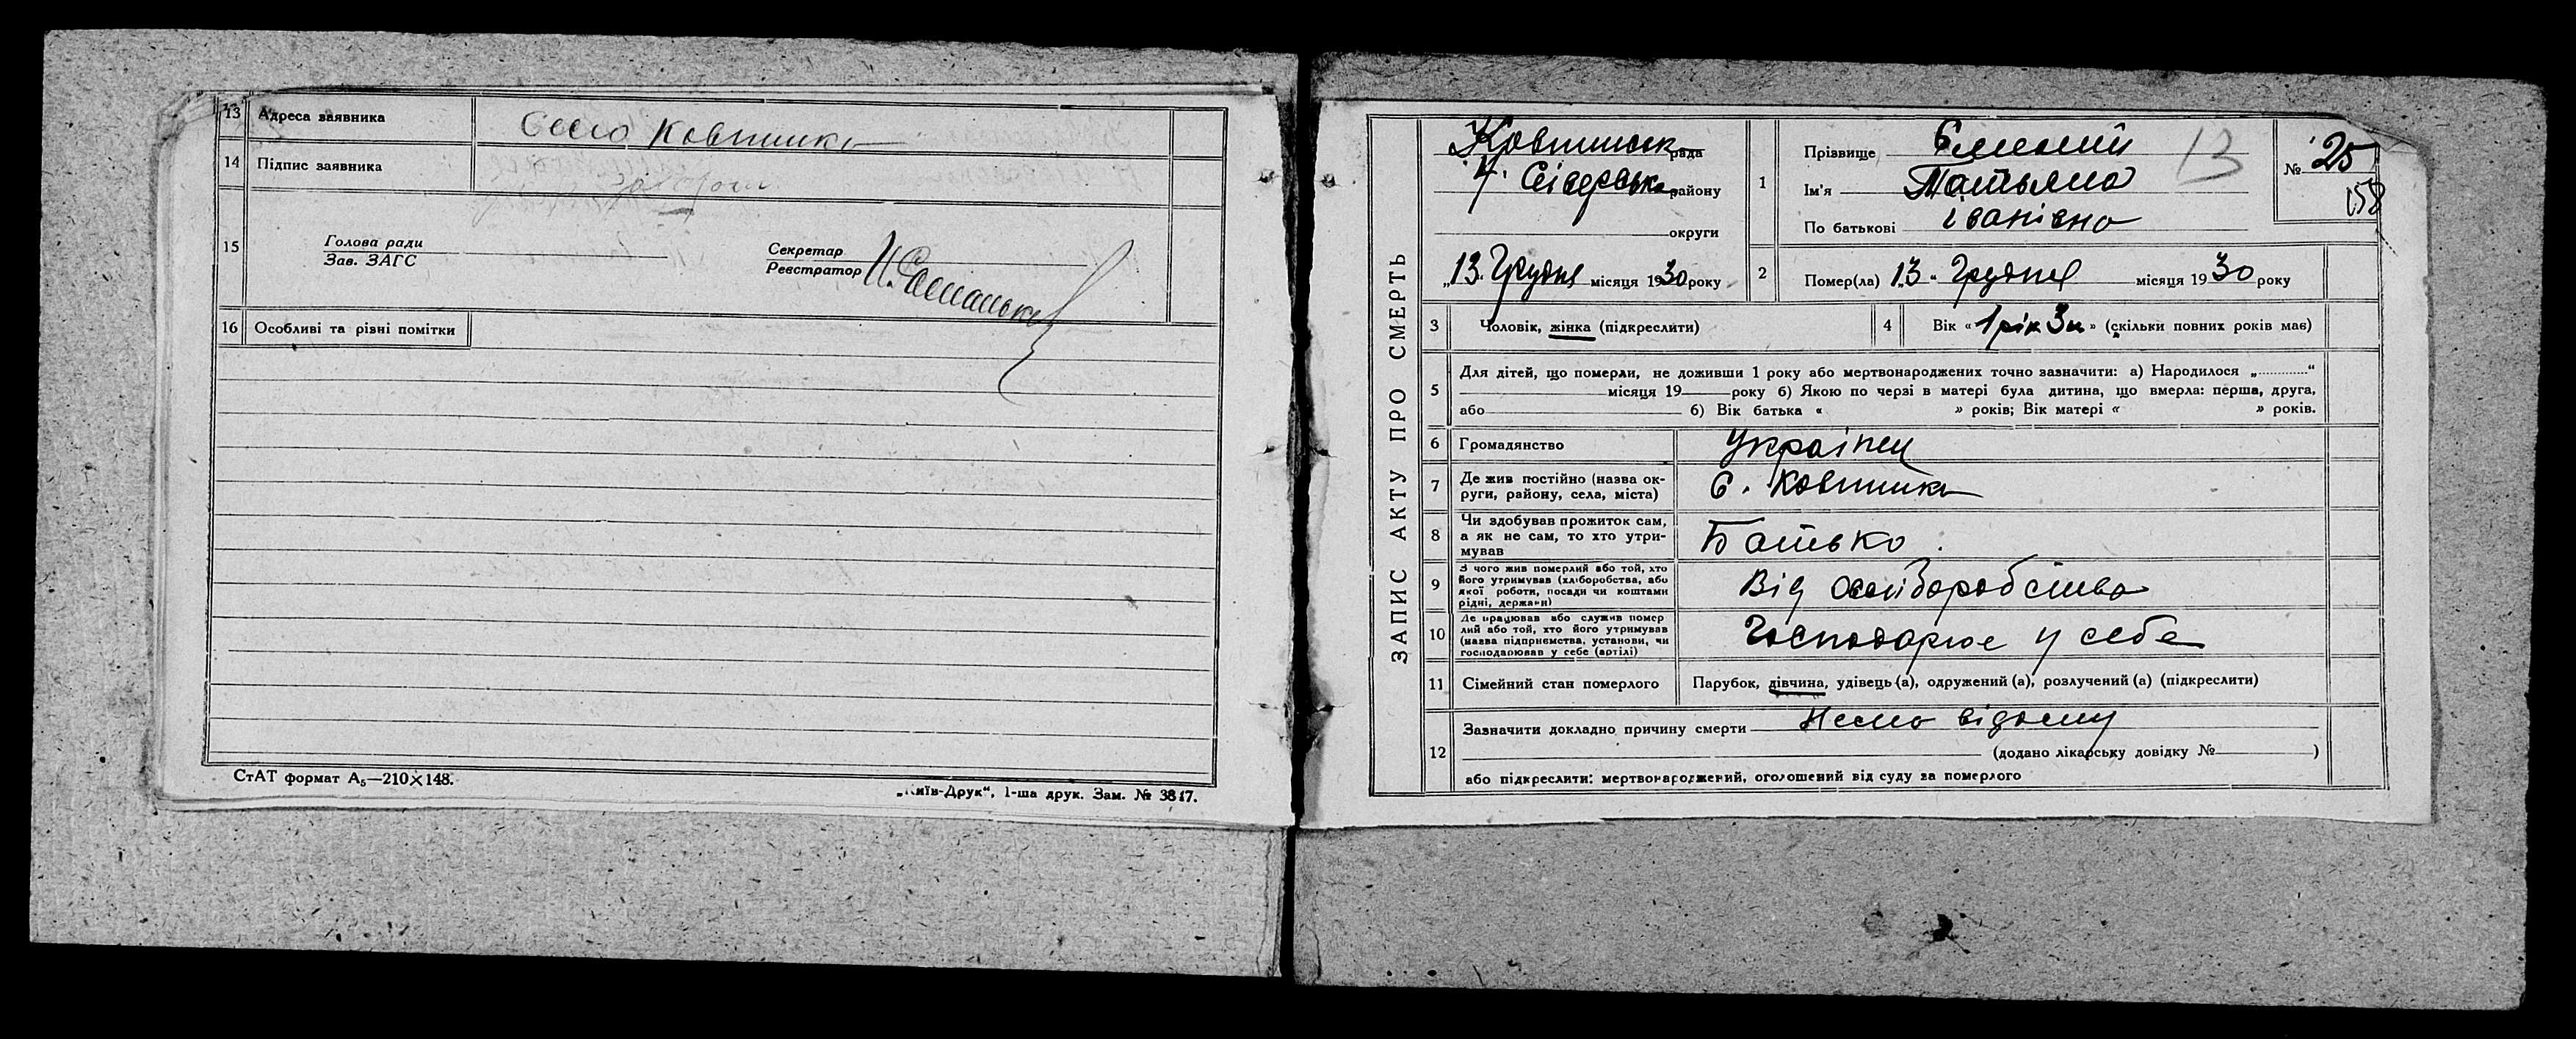 13 Адреса заявника Село Ковтунка
14 Підпис заявника
15 Голова ради
Зав. ЗАГС
Секретар
Реєстратор
16 Особливі та рівні помітки
СтАТ формат А₅—210×148.
„Київ-Друк“, 1-ша друк. Зам. № 3817.
ЗАПИС АКТУ ПРО СМЕРТЬ
рада
Н. Сіверськ району
округи
„13„ Грудня місяця 1930 року
1 Прізвище 13
Ім'я Татьяна
По батькові Іванівна
№ 25
158
2 Помер(ла) „13“ Грудня місяця 1930 року
3 Чоловік, жінка (підкреслити)
4 Вік « 1 рік 3 м » (скільки повних років має)
5 Для дітей, що померли, не доживши 1 року або мертвонароджених точно зазначити: а) Народилося „............“
місяця 19 року б) Якою по черзі в матері була дитина, що вмерла: перша, друга,
або б) Вік батька « » років; Вік матері « » років.
6 Громадянство Українец
7 Де жив постійно (назва ок-
руги, району, села, міста) С. Ковтунка
8 Чи здобував прожиток сам,
а як не сам, то хто утри-
мував Батько.
9 З чого жив померлий або той, хто
його утримував (хліборобства, або
якої роботи, посади чи коштами
рідні, держави) Від хліборобства
10 Де працював або служив помер
лий або той, хто його утримував
(назва підприємства, установи, чи
господарював у себе (артілі) Господарює у себе
11 Сімейний стан померлого Парубок, дівчина, удівець (а), одружений (а), розлучений (а) (підкреслити)
12 Зазначити докладно причину смерти відому
(додано лікарську довідку № )
або підкреслити: мертвонароджений, оголошений від суду за померлого